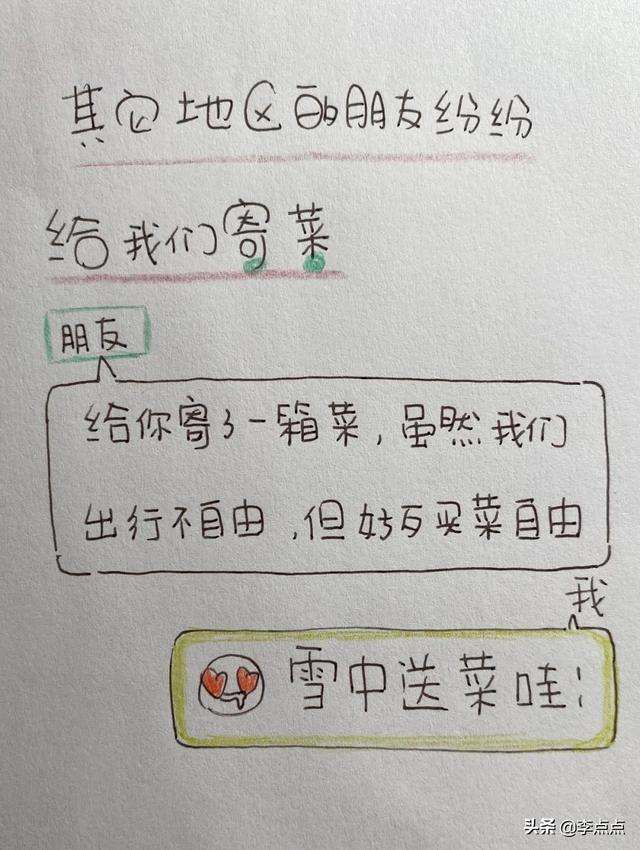 其它地区的朋友纷纷
给我们寄菜
朋友
给你寄了一箱菜，虽然我们
出行不自由，但好歹买菜自由
我
雪中送菜哇！
头条 @李点点